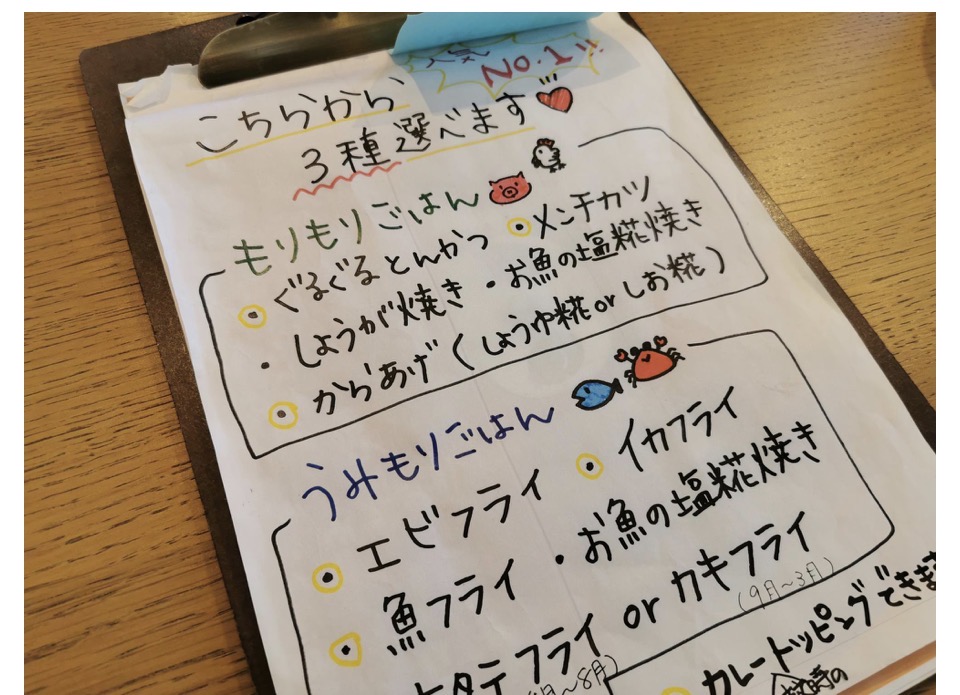 人気
No.1!!
こちらから
3種選べます
もりもりごはん
ぐるぐるとんかつ ・メンチカツ
・しょうが焼き ・お魚の塩糀焼き
・からあげ(しょうゆ糀orしお糀)
うみもりごはん
・エビフライ ・イカフライ
・魚フライ ・お魚の塩糀焼き
タテフライ or カキフライ
月〜8月) (9月〜3月)
カレートッピングできま
時の